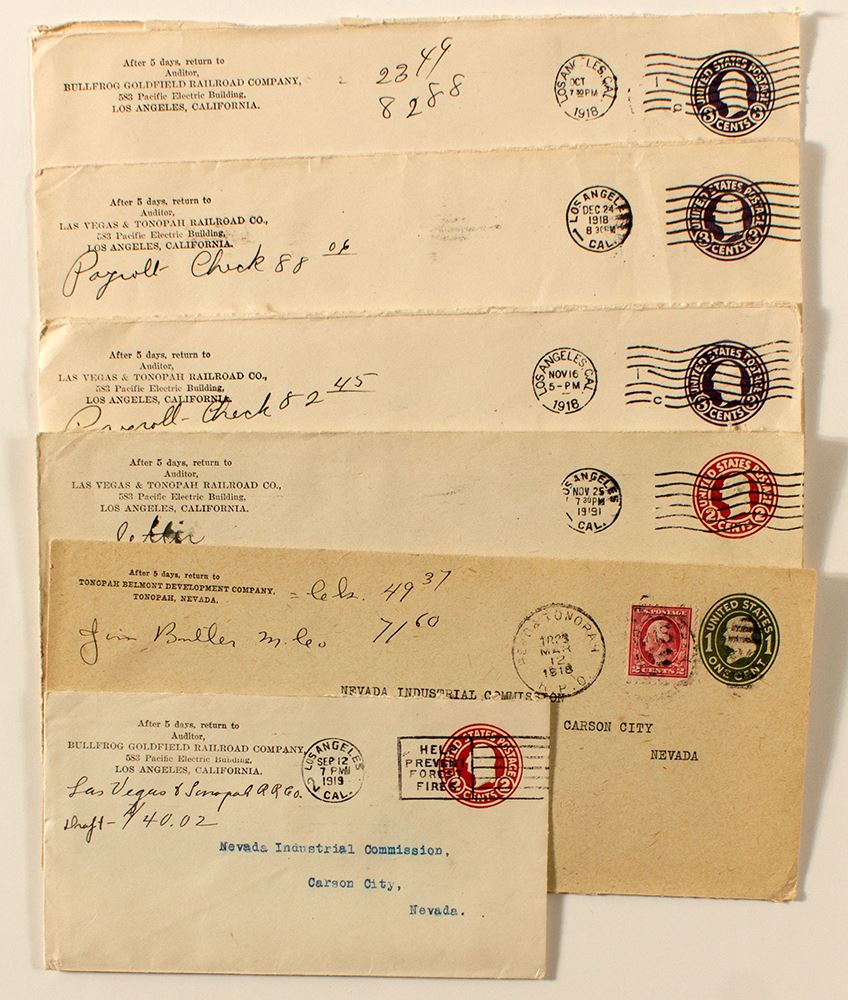 After 5 days, return to
Auditor,
BULLFROG GOLDFIELD RAILROAD COMPANY,
583 Pacific Electric Building,
LOS ANGELES, CALIFORNIA.
23 49
82 88
LOS ANGELES, CAL.
OCT
7 30 PM
1918
UNITED STATES POSTAGE
3 CENTS 3
After 5 days, return to
Auditor,
LAS VEGAS & TONOPAH RAILROAD CO.,
583 Pacific Electric Building,
LOS ANGELES, CALIFORNIA.
Payroll Check 88 06
LOS ANGELES
DEC 24
1918
8 30 PM
CAL.
UNITED STATES POSTAGE
3 CENTS 3
After 5 days, return to
Auditor,
LAS VEGAS & TONOPAH RAILROAD CO.,
583 Pacific Electric Building,
LOS ANGELES, CALIFORNIA.
Payroll Check 82 45
LOS ANGELES, CAL.
NOV 16
5-PM
1918
UNITED STATES POSTAGE
3 CENTS 3
After 5 days, return to
Auditor,
LAS VEGAS & TONOPAH RAILROAD CO.,
583 Pacific Electric Building,
LOS ANGELES, CALIFORNIA.
LOS ANGELES
NOV 25
7 30 PM
1919
CAL.
UNITED STATES POSTAGE
2 CENTS 2
After 5 days, return to
TONOPAH BELMONT DEVELOPMENT COMPANY,
TONOPAH, NEVADA.
49 37
Jim Butler M. Co 71 60
TONOPAH
MAR
12
1918
R.P.O.
U.S. POSTAGE
2 CENTS 2
UNITED STATES
1 1
ONE CENT
NEVADA INDUSTRIAL COMMISSION
CARSON CITY
NEVADA
After 5 days, return to
Auditor,
BULLFROG GOLDFIELD RAILROAD COMPANY,
583 Pacific Electric Building,
LOS ANGELES, CALIFORNIA.
Las Vegas & Tonopah R R Co.
Draft - $40.02
LOS ANGELES
SEP 12
7 PM
1919
2 CAL.
HELP
PREVENT
FOREST
FIRES
UNITED STATES POSTAGE
2 CENTS 2
Nevada Industrial Commission,
Carson City,
Nevada.